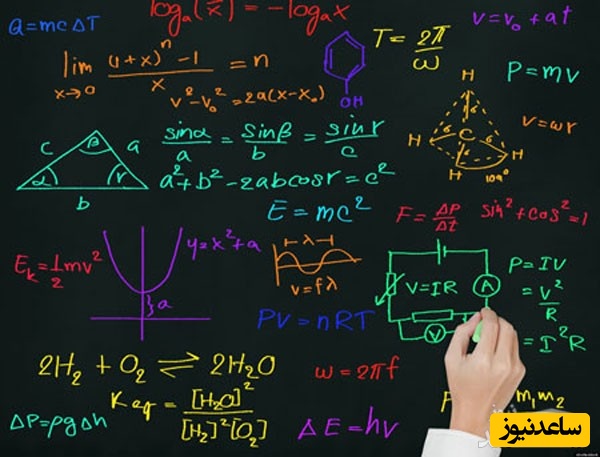 Q = mcΔT
logₐ(1/x) = -logₐx
v = v₀ + at
lim x→0 ((1+x)ⁿ - 1)/x = n
OH
T = 2π/ω
P = mv
v² - v₀² = 2a(x - x₀)
H
H C H
H
109°
v = ωr
c β a
α r
b
sinα/a = sinβ/b = sinr/c
a² + b² - 2abcosr = c²
E = mc²
F = ΔP/Δt
sin² + cos² = 1
Eₖ = 1/2 mv²
y = x² + a
a
λ
v = fλ
V = IR
A
V
P = IV
= V²/R
= I²R
PV = nRT
2H₂ + O₂ ⇌ 2H₂O
ω = 2πf
Keq = [H₂O]²/[H₂]²[O₂]
ΔP = ρgΔh
ΔE = hv
m₁m₂
ساعدنیوز